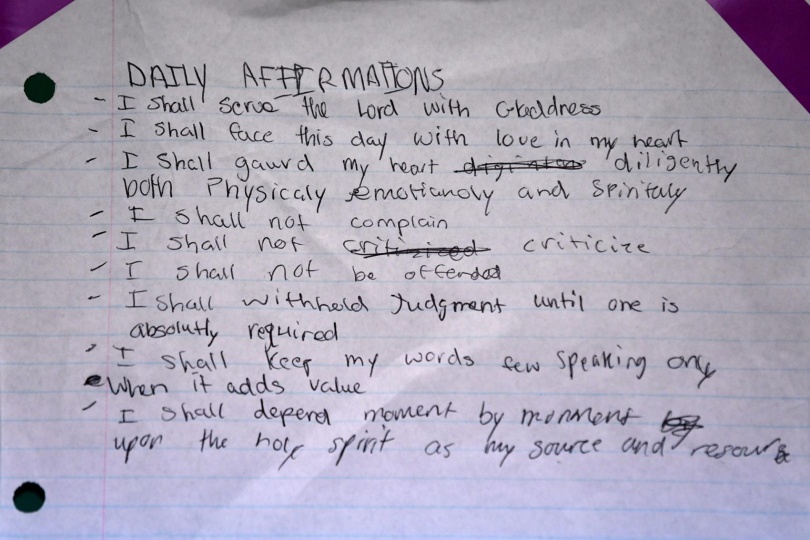 DAILY AFFIRMATIONS
- I shall serve the Lord with Gladdness
- I shall face this day with love in my heart
- I shall gaurd my heart diligently
both Physicaly emotionoly and Spiritaly
- I shall not complain
- I shall not criticize
- I shall not be offended
- I shall withheld Judgment until one is
absolutly required
- I shall keep my words few speaking only
when it adds value
- I shall depend moment by monment
upon the holy spirit as my source and resource